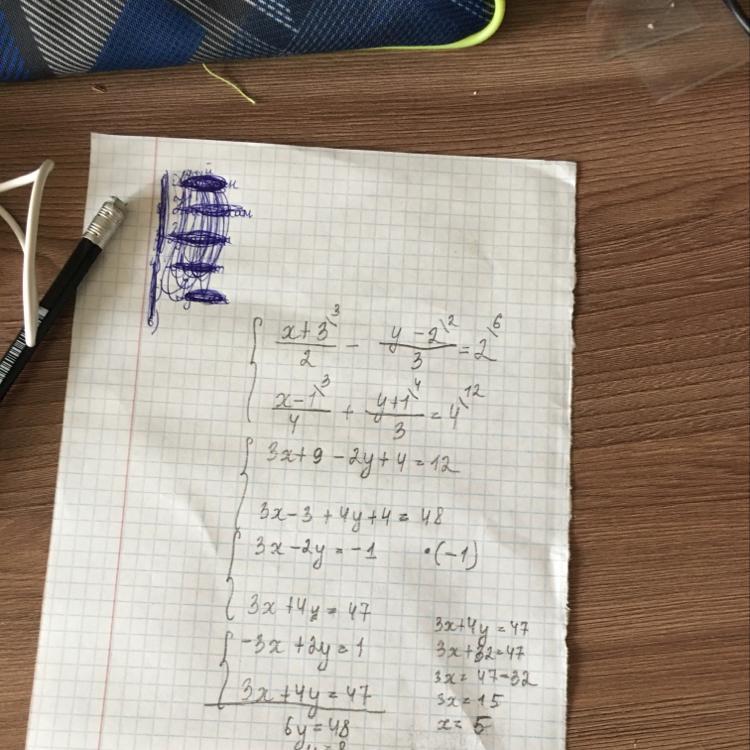 x+3\3 / 2 − y−2\2 / 3 = 2\6
x−1\3 / 4 + y+1\4 / 3 = 4\12
3x+9−2y+4=12
3x−3+4y+4=48
3x−2y=−1 •(−1)
3x+4y=47
−3x+2y=1
3x+4y=47
6y=48
y=8
3x+4y=47
3x+32=47
3x=47−32
3x=15
x=5